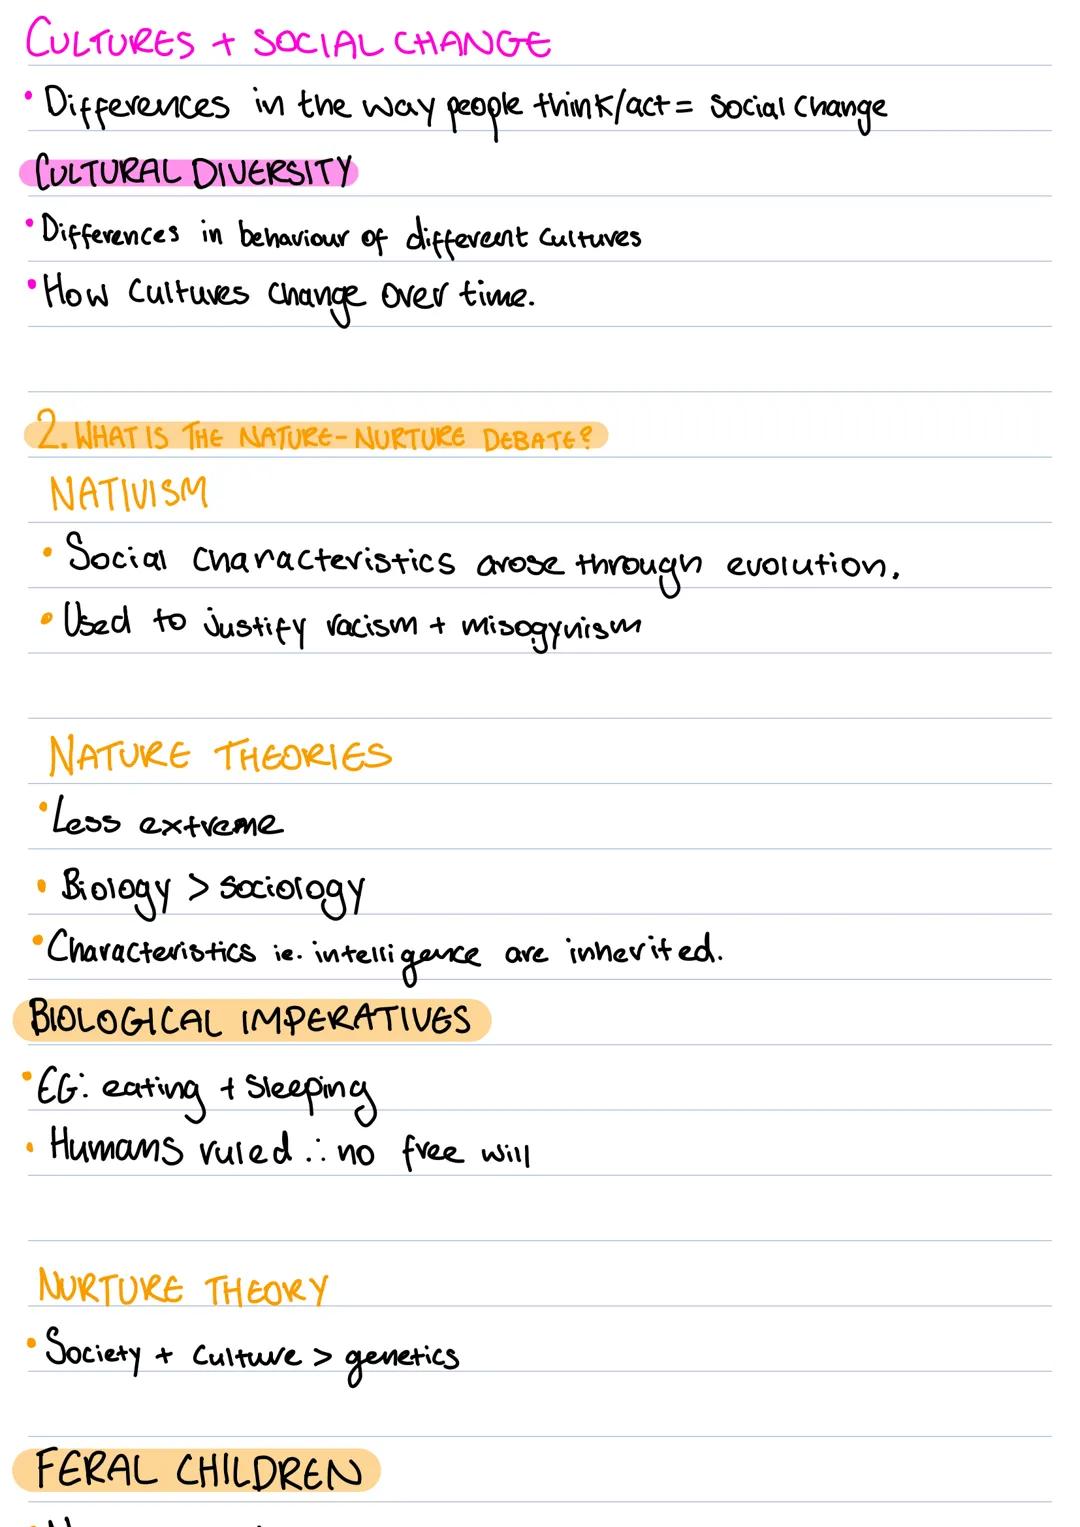 CULTURES + SOCIAL CHANGE
• Differences in the way people think/act = social change
CULTURAL DIVERSITY
• Differences in behaviour of different cultures
• How cultures change over time.
2. WHAT IS THE NATURE-NURTURE DEBATE?
NATIVISM
• Social characteristics arose through evolution.
• Used to justify racism + misogynism
NATURE THEORIES
• Less extreme
• Biology > sociology
• Characteristics ie. intelligence are inherited.
BIOLOGICAL IMPERATIVES
• EG: eating + sleeping
• Humans ruled ∴ no free will
NURTURE THEORY
• Society + culture > genetics
FERAL CHILDREN